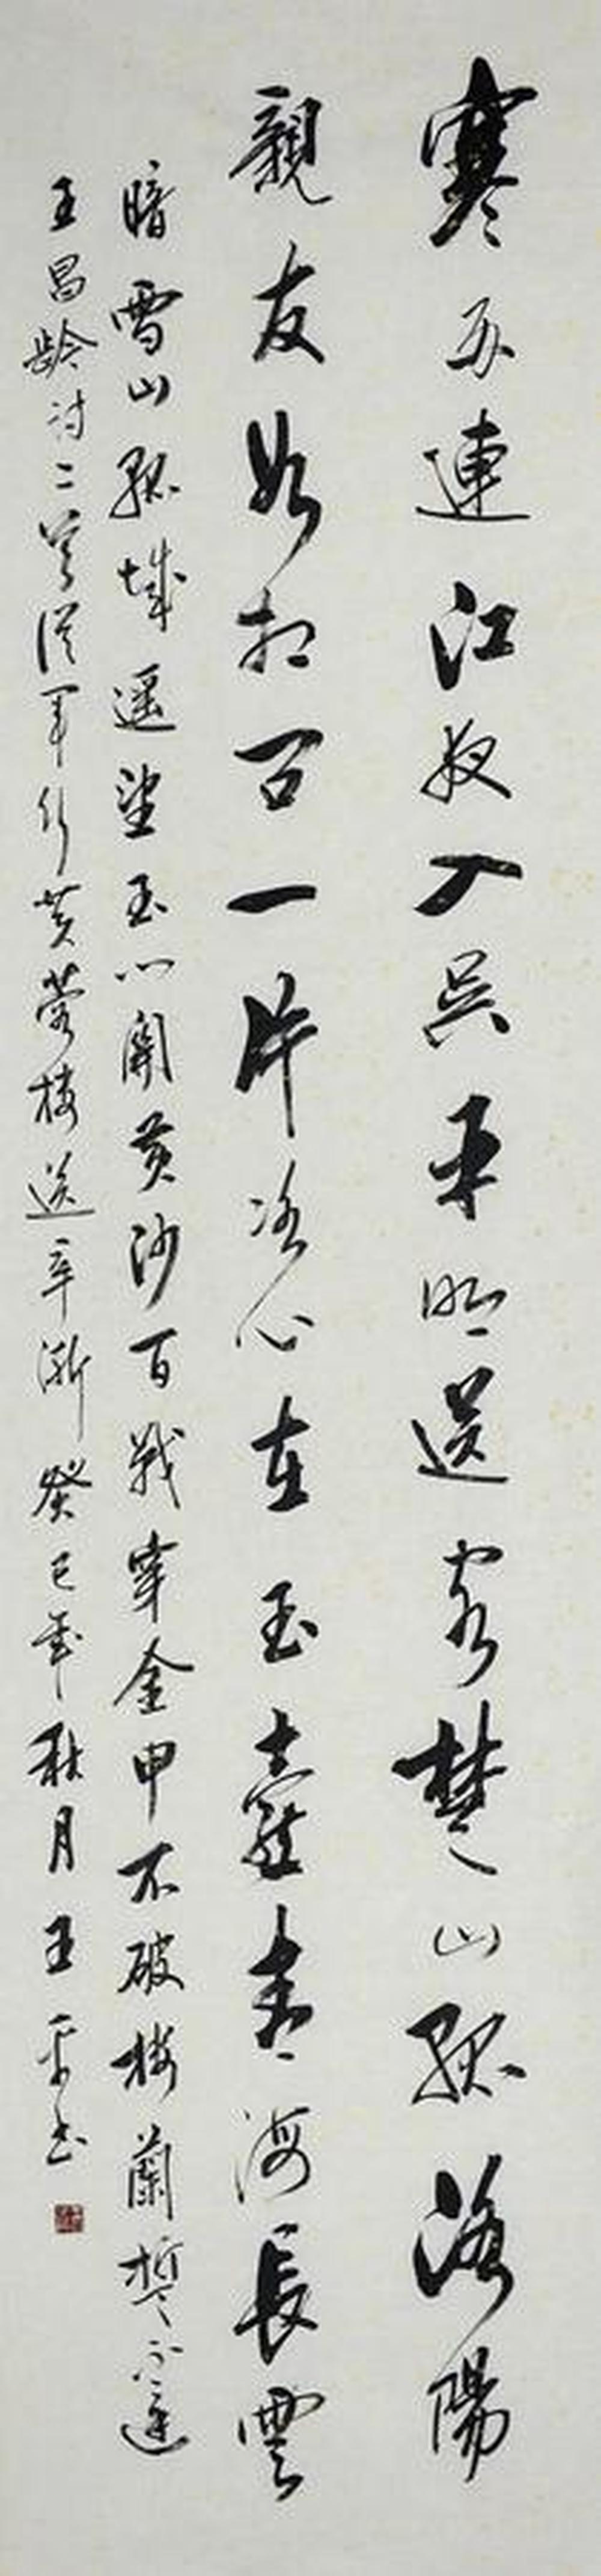 寒雨連江夜入吳平明送客楚山孤洛陽
親友如相問一片冰心在玉壺青海長雲
暗雪山孤城遥望玉门關黄沙百戰穿金甲不破楼蘭誓不還
王昌龄诗二首從軍行芙蓉楼送辛漸癸巳年秋月王平书